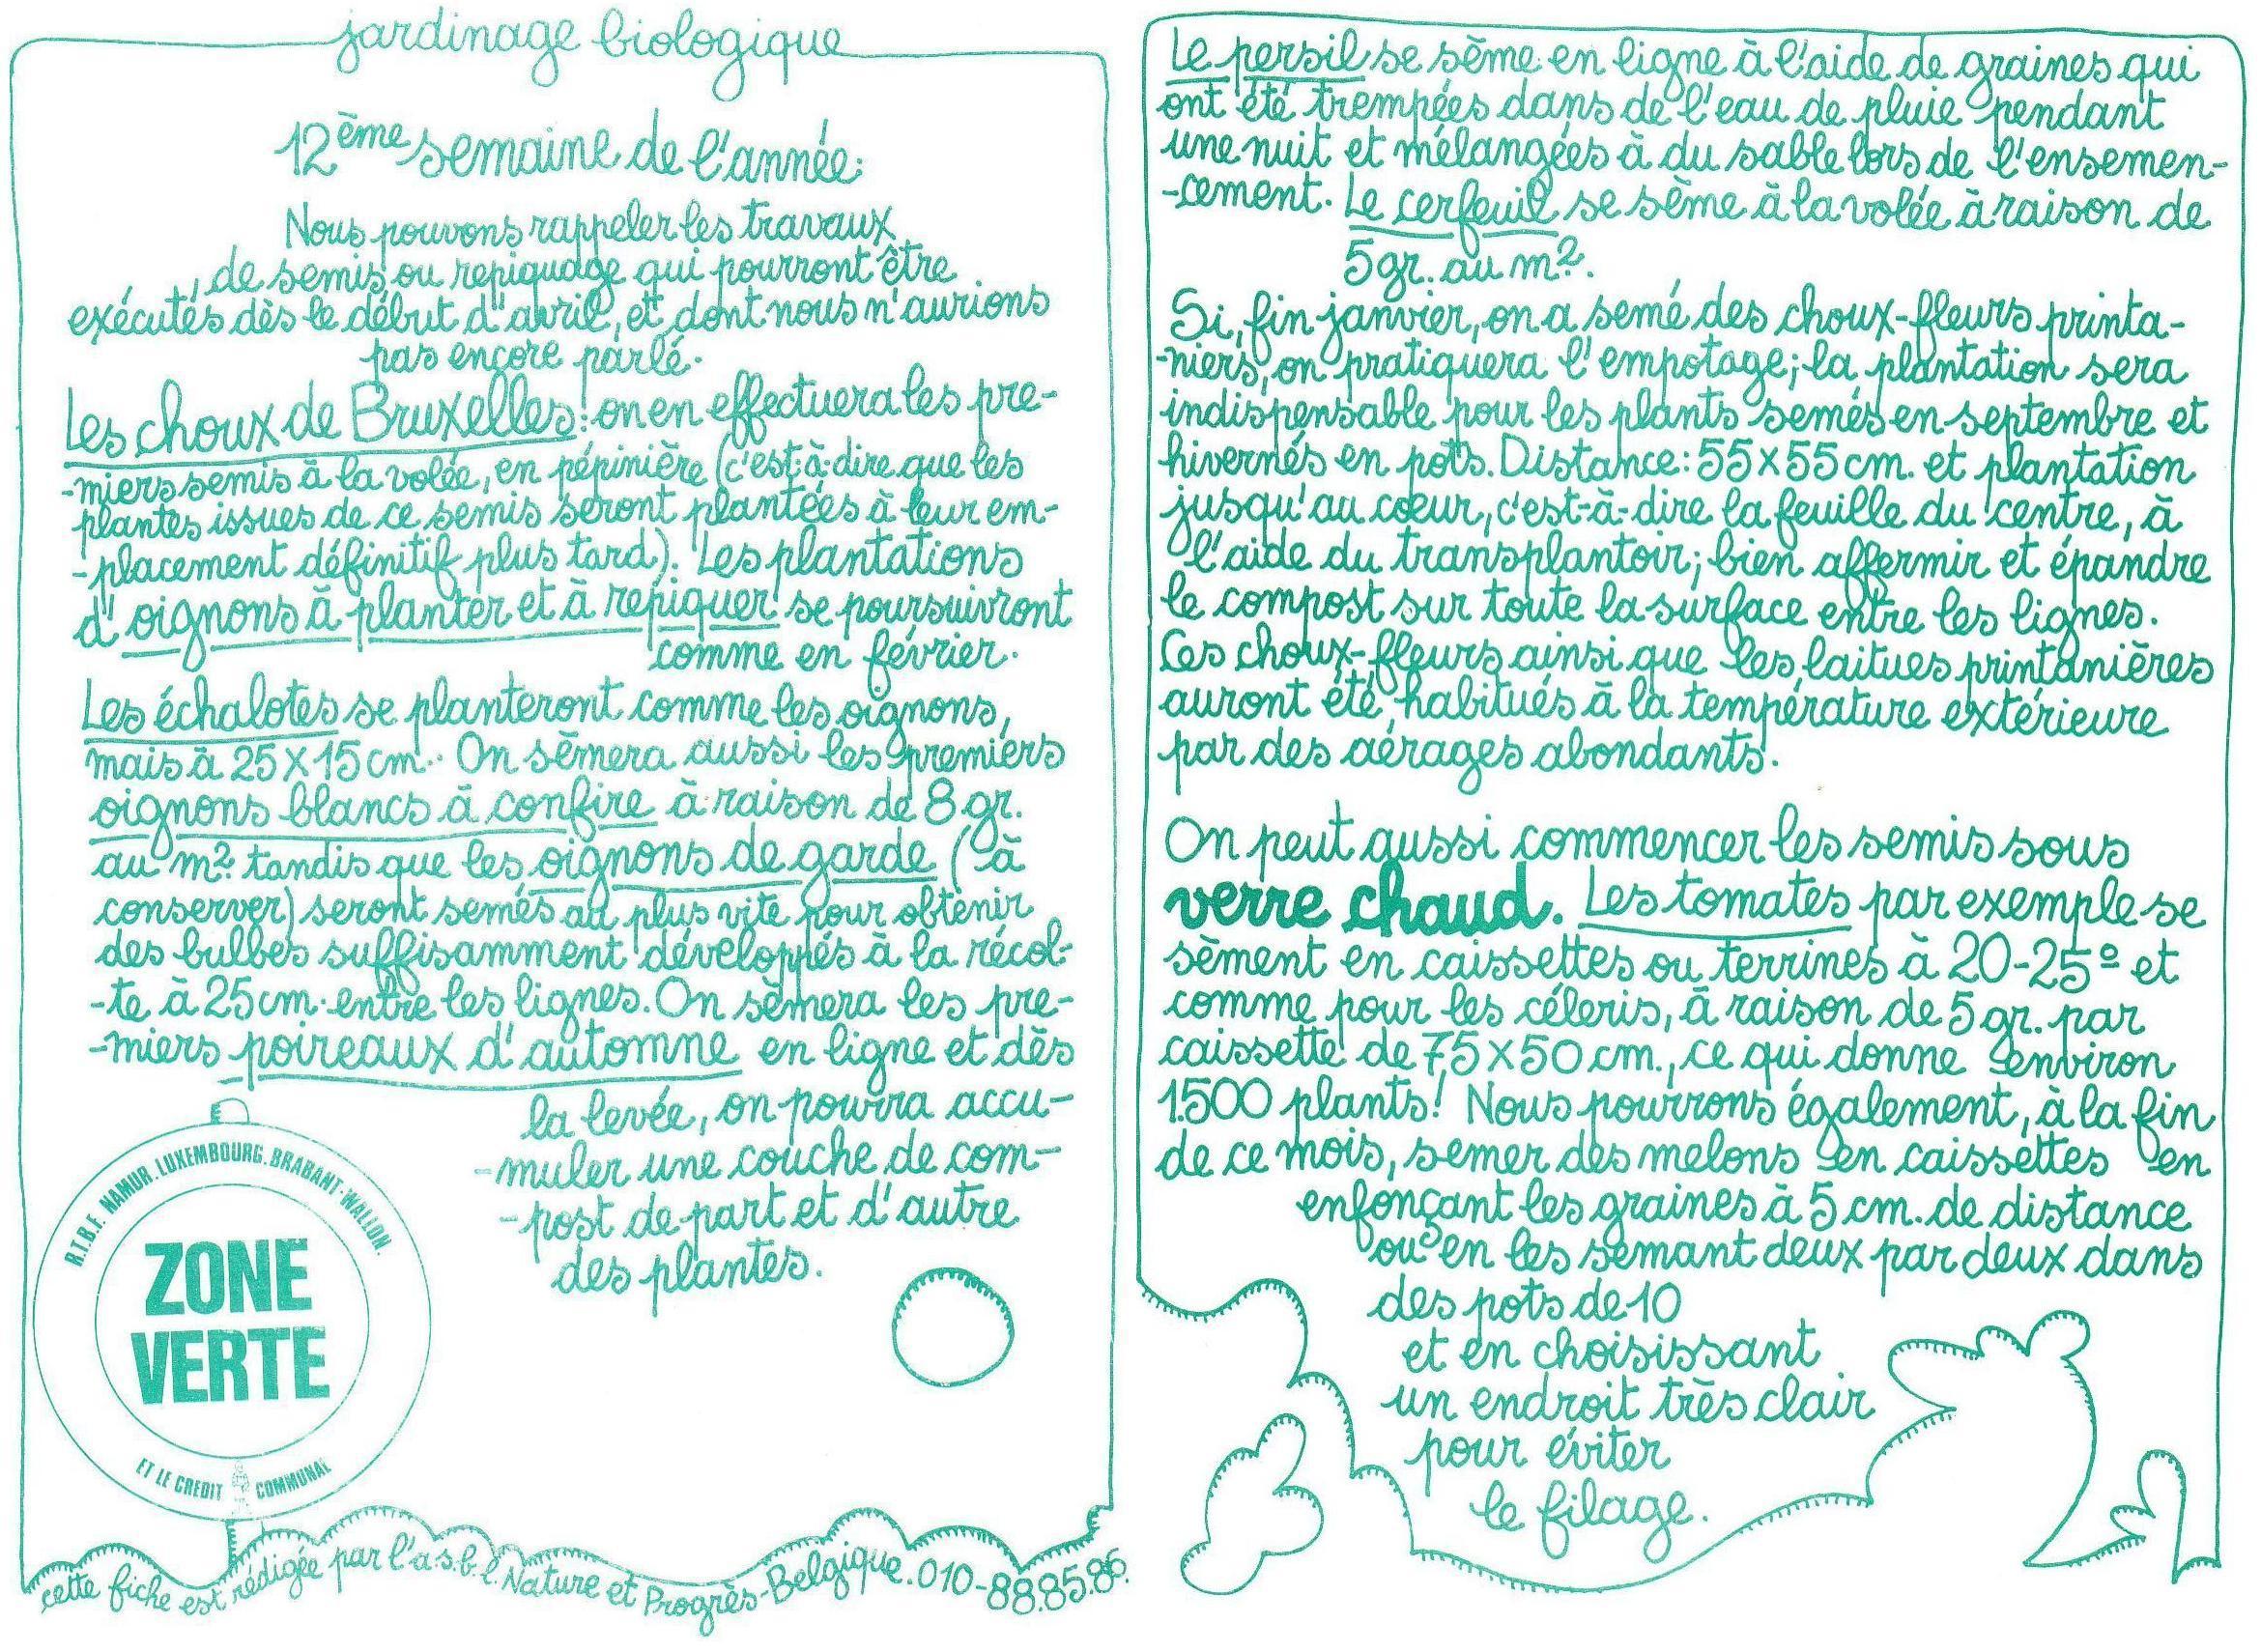 jardinage biologique
12ème semaine de l'année:
Nous pouvons rappeler les travaux
de semis ou repiquage qui pourront être
exécutés dès le début d'avril, et dont nous n'aurions
pas encore parlé.
Les choux de Bruxelles: on en effectuera les pre-
-miers semis à la volée, en pépinière (c'est-à-dire que les
plantes issues de ce semis seront plantées à leur em-
-placement définitif plus tard). Les plantations
d'oignons à planter et à repiquer se poursuivront
comme en février.
Les échalotes se planteront comme les oignons,
mais à 25 x 15 cm.. On sèmera aussi les premiers
oignons blancs à confire à raison de 8 gr.
au m2. tandis que les oignons de garde (à
conserver) seront semés au plus vite pour obtenir
des bulbes suffisamment développés à la récol-
-te à 25 cm. entre les lignes. On sèmera les pre-
-miers poireaux d'automne en ligne et dès
la levée, on pourra accu-
-muler une couche de com-
-post de part et d'autre
des plantes.
R.T.B.F. NAMUR. LUXEMBOURG. BRABANT-WALLON.
ZONE
VERTE
ET LE CREDIT COMMUNAL
cette fiche est rédigée par l'a.s.b.l. Nature et Progrès-Belgique. 010-88.85.86.
Le persil se sème en ligne à l'aide de graines qui
ont été trempées dans de l'eau de pluie pendant
une nuit et mélangées à du sable lors de l'ensemen-
-cement. Le cerfeuil se sème à la volée à raison de
5 gr. au m2.
Si, fin janvier, on a semé des choux-fleurs printa-
-niers, on pratiquera l'empotage; la plantation sera
indispensable pour les plants semés en septembre et
hivernés en pots. Distance: 55 x 55 cm. et plantation
jusqu'au cœur, c'est-à-dire la feuille du centre, à
l'aide du transplantoir; bien affermir et épandre
le compost sur toute la surface entre les lignes.
Ces choux-fleurs ainsi que les laitues printanières
auront été habitués à la température extérieure
par des aérages abondants.
On peut aussi commencer les semis sous
verre chaud. Les tomates par exemple se
sèment en caissettes ou terrines à 20-25° et
comme pour les céleris, à raison de 5 gr. par
caissette de 7,5 x 50 cm., ce qui donne environ
1.500 plants! Nous pourrons également, à la fin
de ce mois, semer des melons en caissettes en
enfonçant les graines à 5 cm. de distance
ou en les semant deux par deux dans
des pots de 10
et en choisissant
un endroit très clair
pour éviter
le filage.